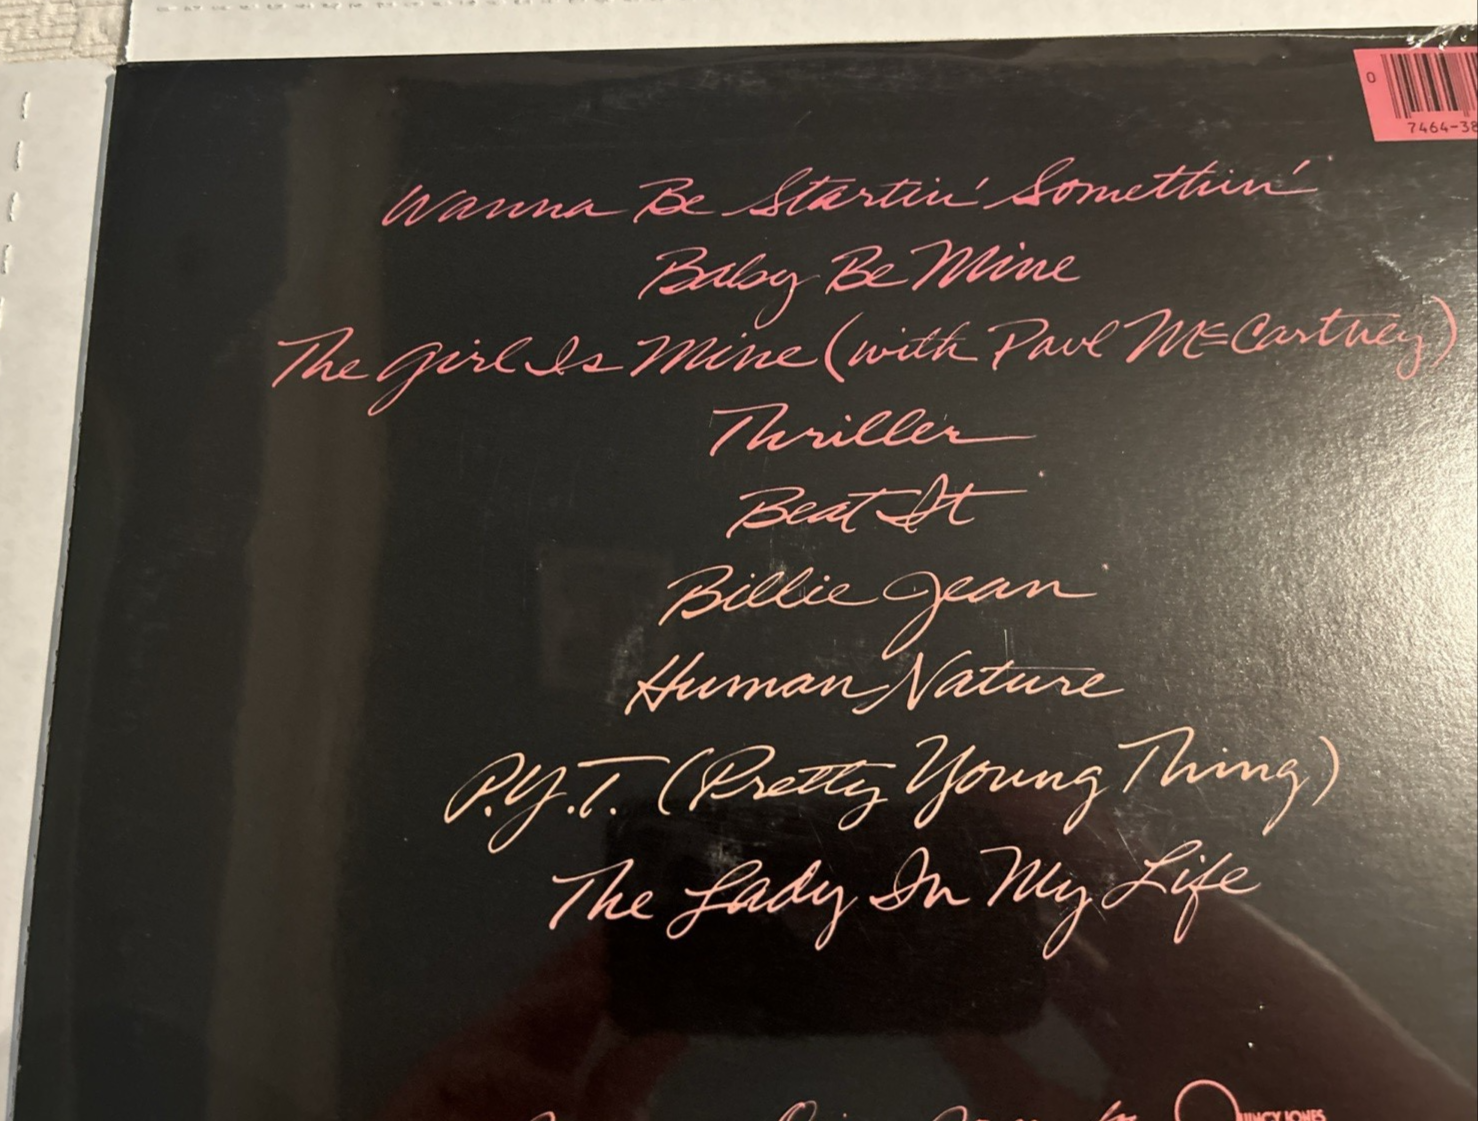 0
7464-38
Wanna Be Startin' Somethin'
Baby Be Mine
The Girl Is Mine (with Paul McCartney)
Thriller
Beat It
Billie Jean
Human Nature
P.Y.T. (Pretty Young Thing)
The Lady In My Life
QUINCY JONES